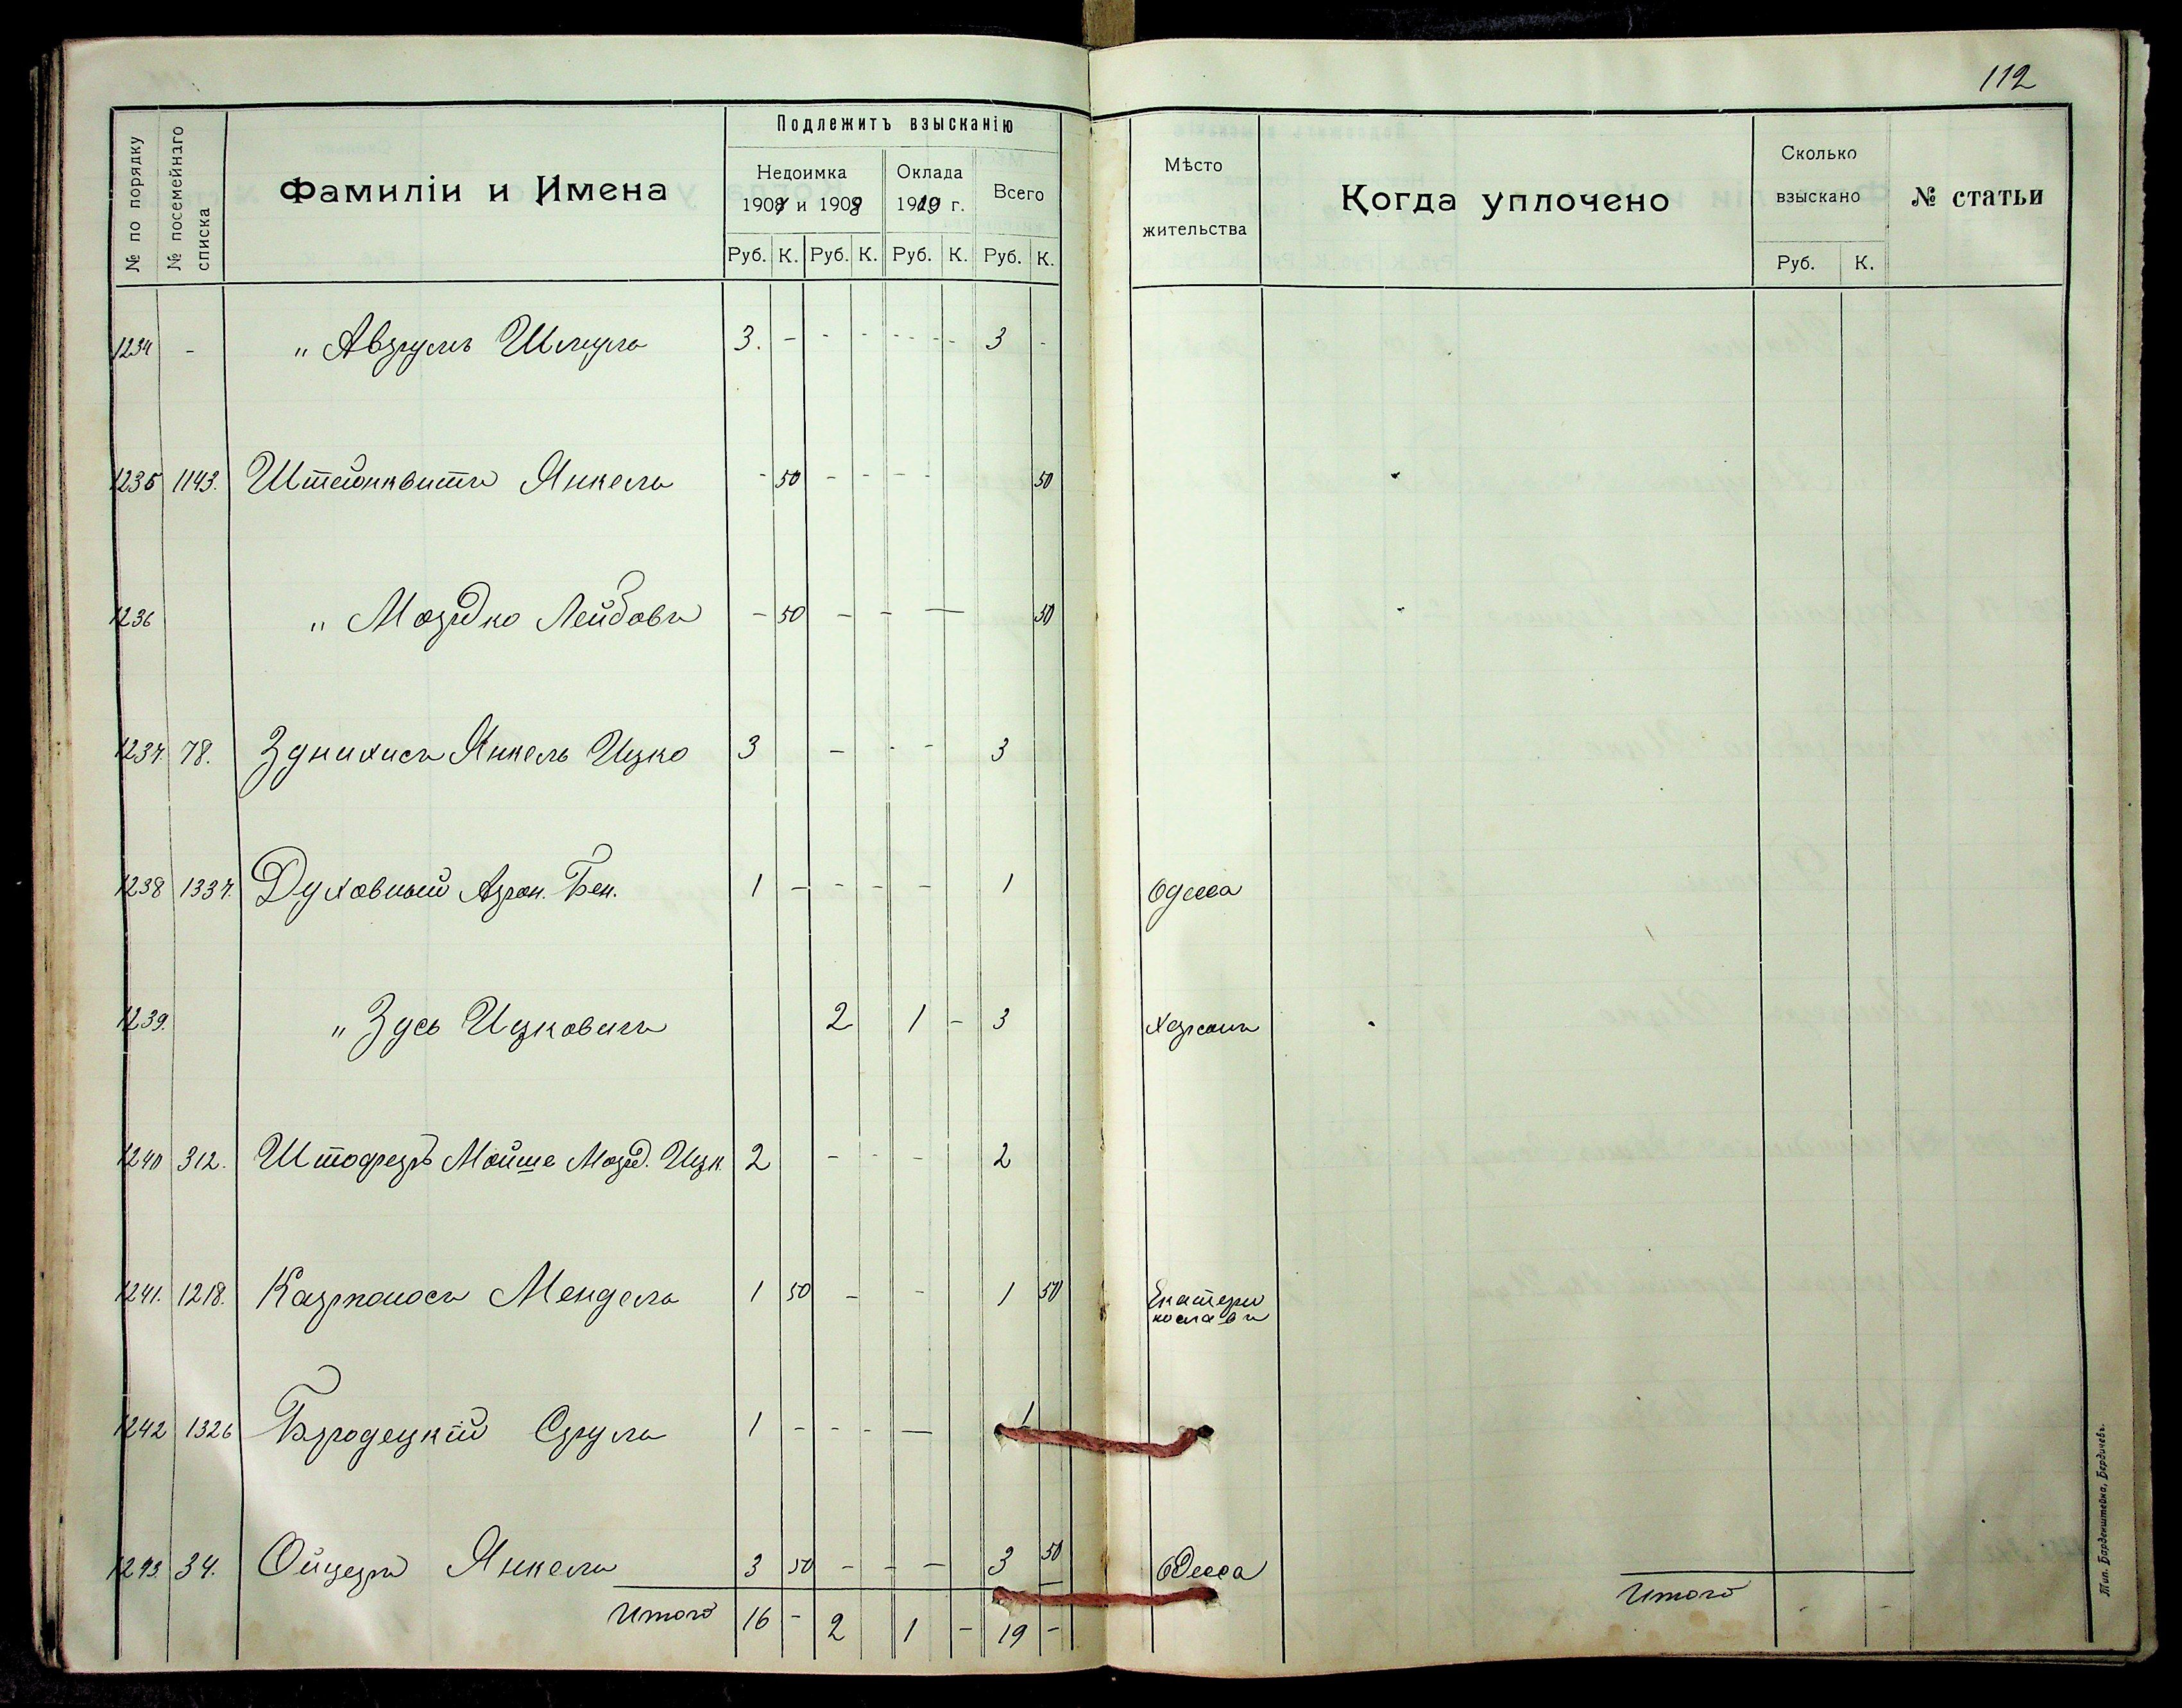 112
№ по порядку
№ посемейнаго списка
Фамиліи и Имена
Подлежитъ взысканію
Недоимка
и
Оклада
г.
Всего
Руб. К. Руб. К. Руб. К. Руб. К.
Мѣсто
жительства
Когда уплочено
Сколько
взыскано
Руб. К.
№ статьи
1234 - " Аврумъ Шмуль 3. - - - - - - 3 -
1235 1143. Штейнквитъ Янкель - 50 - - - 50
1236 " Мордко Лейбовъ - 50 - - — 50
1237. 78. Янкель Ицко 3 - - - 3
1238 1337. Духовный Арон. Бен. 1 - - - - 1 Одесса
1239. " Зусь Ицковичъ 2 1 - 3 Херсонъ
1240 312. Штофферъ Мойше Морд. Ицк. 2 - - - 2
1241. 1218. Карпоносъ Мендель 1 50 - - 1 50 Екатери
нославъ
1242 1326 Бродецкій Сруль 1 - - - — 1
1243. 34. Ойцеръ Янкель 3 50 - - - 3 50 Одесса
Итого 16 - 2 1 - 19 -
Итого - -
Тип. Барденштейна, Бердичевъ.